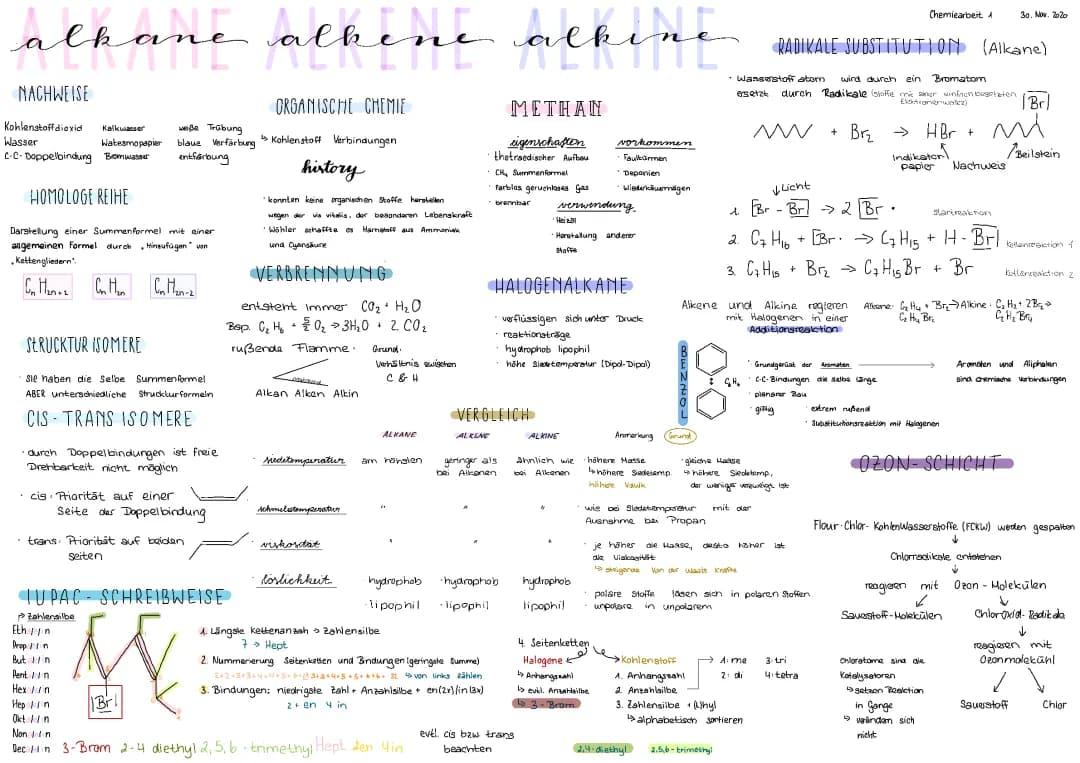 Chemiearbeit 1 30. Nov. 2020
ALKANE ALKENE ALKINE
alkane alkene alkine
NACHWEISE
Kohlenstoffdioxid Kalkwasser weiße Trübung
Wasser Watesmopapier blaue Verfärbung
C-C-Doppelbindung Bromwasser entfärbung
HOMOLOGE REIHE
Darstellung einer Summenformel mit einer
allgemeinen Formel durch „Hinzufügen" von
„Kettengliedern".
CnH2n+2 CnH2n CnH2n-2
STRUCKTUR ISOMERE
· Sie haben die Selbe Summenformel
ABER unterschiedliche Strukturformeln
CIS-TRANS ISOMERE
· durch Doppelbindungen ist freie
Drehbarkeit nicht möglich
· cis: Priorität auf einer
Seite der Doppelbindung
· trans: Priorität auf beiden
seiten
ORGANISCHE CHEMIE
↳ Kohlenstoff Verbindungen
history
· konnten keine organischen Stoffe herstellen
wegen der vis vitalis, der besonderen Lebenskraft
· Wöhler schaffte es Harnstoff aus Ammoniak
und Cyansäure
VERBRENNUNG
entsteht immer CO2 + H2O
Bsp. C2H6 + 5/2 O2 → 3H2O + 2 CO2
rußende Flamme. Grund:
Verhältnis zwischen
C & H
Alkan Alken Alkin
METHAN
eigenschaften
· thetraedischer Aufbau
· CH4 Summenformel
· farblos geruchloses Gas
· brennbar
vorkommen
· Faulkarmen
· Deponien
· Wiederkäuermägen
verwendung
· Heizöl
· Herstellung anderer
Stoffe
HALOGENALKANE
· verflüssigen sich unter Druck
· reaktionsträge
· hydrophob lipophil
· höhe Siedetemperatur (Dipol-Dipol)
RADIKALE SUBSTITUTION (Alkane)
· Wasserstoffatom wird durch ein Bromatom
ersetzt durch Radikale (Stoffe mit einer einfach besetzten
Elektronenwolke)
|Br|
+ Br2 → HBr +
Indikator papier Nachweis Beilstein
↓Licht
1. |Br - Br| → 2 |Br · Startreaktion
2. C7H16 + |Br· → C7H15 + H-Br| Kettenreaktion 1
3. C7H15 + Br2 → C7H15Br + Br Kettenreaktion 2
Alkene und Alkine regieren
mit Halogenen in einer
Additionsreaktion
Alkene: C2H4 + Br2 → C2H4Br2
Alkine: C2H2 + 2Br2 → C2H2Br4
BENZOL
C6H6
· Grundgerüst der Aromaten → Aromaten und Aliphaten
sind chemische Verbindungen
· C-C-Bindungen die selbe länge
· planarer Bau
· giftig · extrem rußend
· Substitutionsreaktion mit Halogenen
VERGLEICH
ALKANE ALKENE ALKINE Anmerkung Grund
· Siedetemperatur am höhsten geringer als bei Alkanen ähnlich wie bei Alkenen
· höhere Masse
↳ höhere Siedetemp.
höhere VdWK
· gleiche Masse
↳ höhere Siedetemp,
der weniger verzweigt ist
schmelztemperatur " " "
· wie bei Siedetemperatur mit der
Ausnahme bei Propan
· viskosität " " "
· je höher die Masse, desto höher ist
die Viskosität
↳ steigende Van der Waals Kräfte
· löslichkeit hydrophob · hydrophob hydrophob
· lipophil · lipophil lipophil
· polare Stoffe lösen sich in polaren Stoffen
· unpolare in unpolarem
OZON-SCHICHT
Flour-Chlor-Kohlenwasserstoffe (FCKW) werden gespalten
↓
Chlorradikale entstehen
↓
reagieren mit Ozon-Molekülen
Sauerstoff-Molekülen Chloroxid-Radikale
↓
reagieren mit
Ozonmolekühl
Sauerstoff Chlor
Chloratome sind die
Katalysatoren
↳ setzen Reaktion
in Gange
↳ verändern sich
nicht
IUPAC-SCHREIBWEISE
→ Zahlensilbe
Eth/////n
Prop/////n
But/////n
Pent/////n
Hex/////n
Hep/////n
Okt/////n
Non/////n
Dec/////n
|Br|
1. Längste Kettenanzah → Zahlensilbe
7 → Hept
2. Nummerierung Seitenketten und Bindungen (geringste Summe)
↳ von links zählen
3. Bindungen: niedrigste Zahl + Anzahlsilbe + en(2x)/in(3x)
2+en 4 in
4. Seitenketten
Halogene
↳ Anhangszahl
↳ evtl. Anzahlsilbe
↳ 3-Brom
Kohlenstoff
1. Anhangszahl
2. Anzahlsilbe
3. Zahlensilbe + (y)hyl
↳ alphabetisch sortieren
1: me 3: tri
2: di 4: tetra
3-Brom 2-4 diethyl 2,5,6-trimethyl Hept 2en 4in
evtl. cis bzw trans
beachten
2,4-diethyl 2,5,6-trimethyl